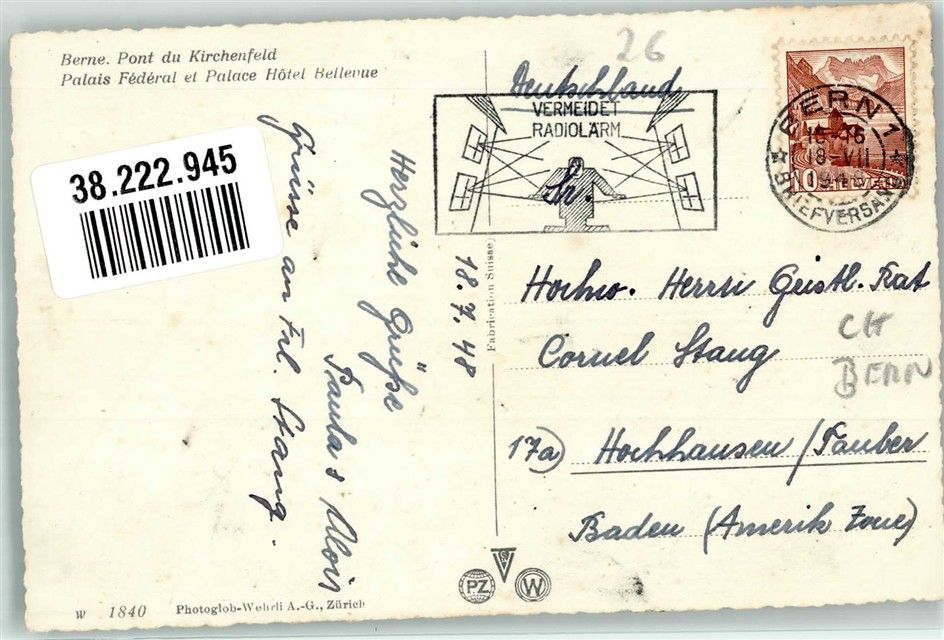 Berne. Pont du Kirchenfeld
Palais Fédéral et Palace Hôtel Bellevue
38.222.945
Herzliche Grüße
Paula & Alois
Grüsse an Frl. Stang.
18.7.48
Fabrication Suisse
26
Deutschland
VERMEIDET
RADIOLÄRM
Sr.
BERN 1
18-VII
BRIEFVERSAND
10 HELVETIA
Hochw. Herrn Geistl. Rat
Cornel Stang
CH
BERN
17a) Hochhausen/Tauber
Baden (Amerik Zone)
PZ
W
W 1840 Photoglob-Wehrli A.-G., Zürich